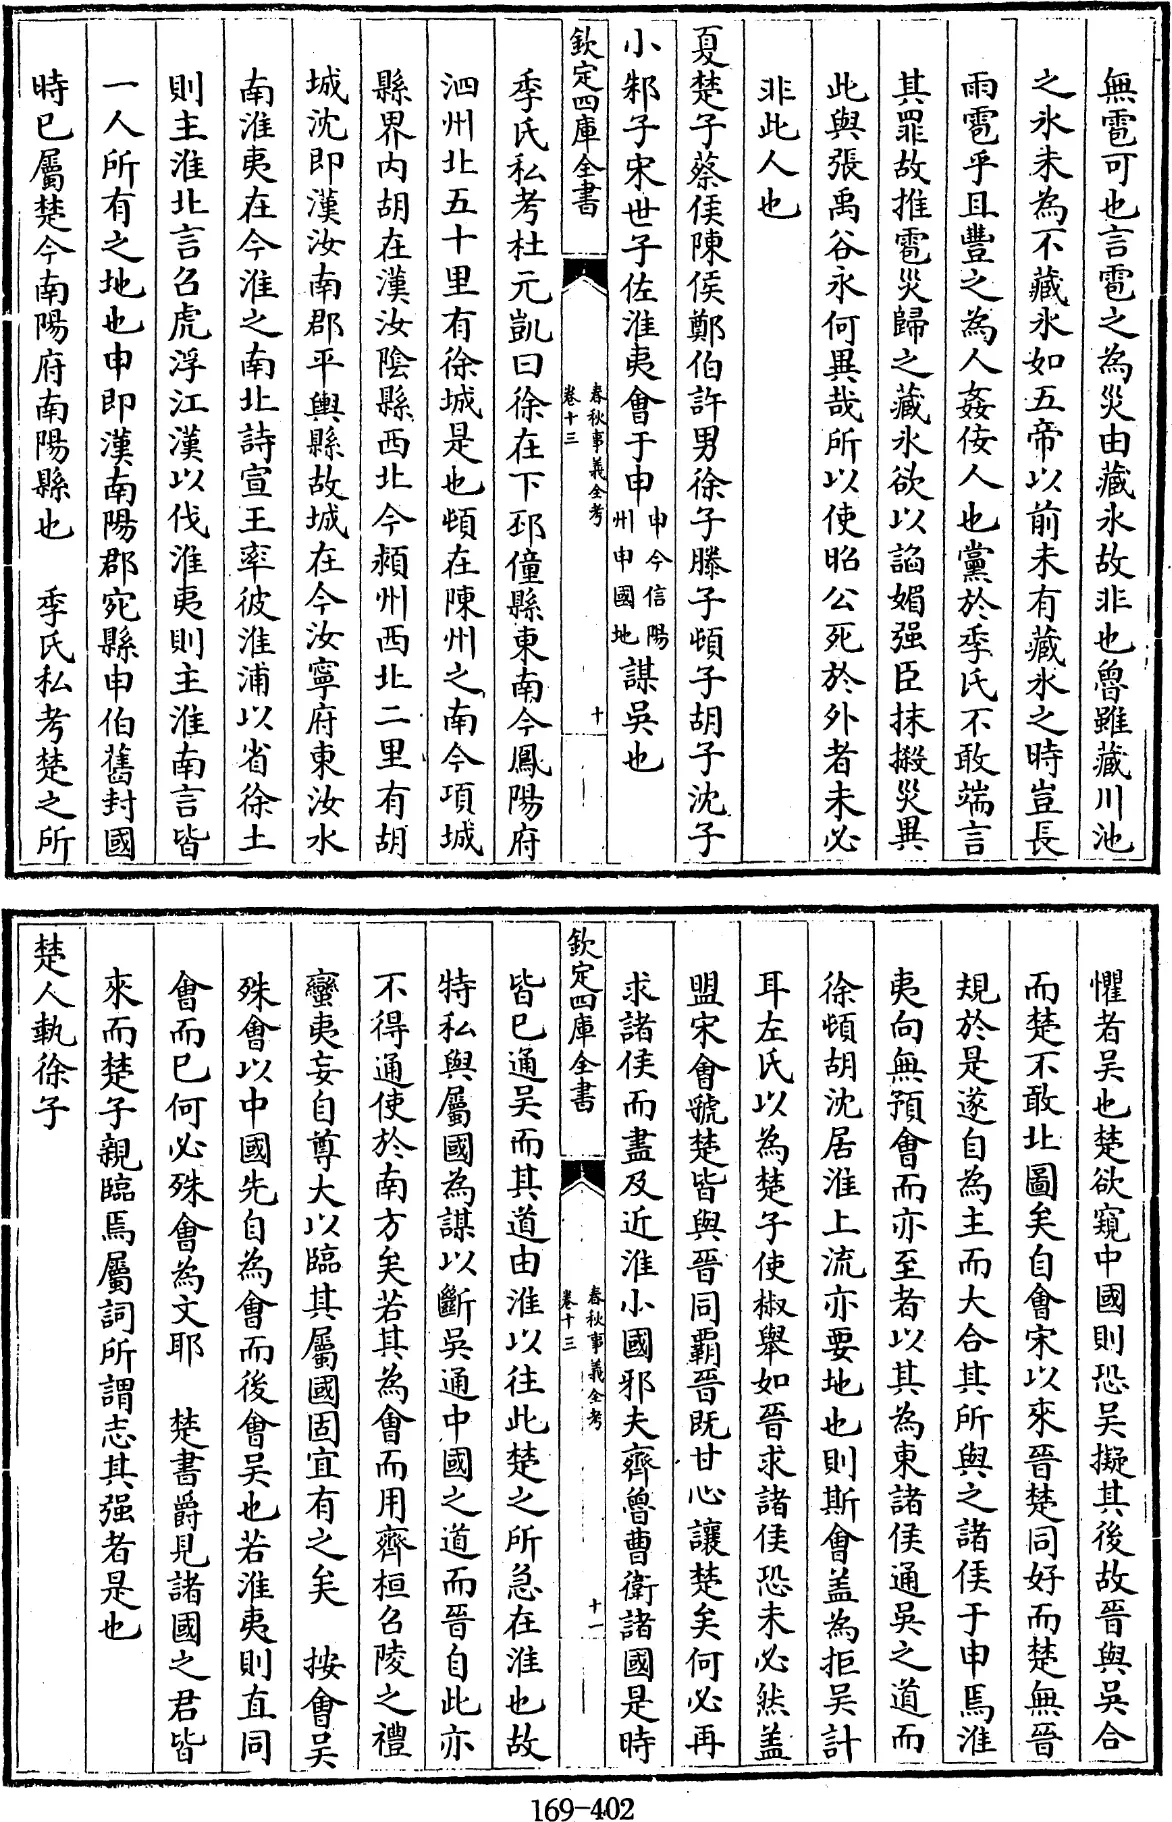 無雹可也言雹之為災由藏氷故非也魯雖藏川池
之氷未為不藏氷如五帝以前未有藏氷之時豈長
雨雹乎且豐之為人姦佞人也黨於季氏不敢端言
其罪故推雹災歸之藏氷欲以諂媚强臣抹摋災異
此與張禹谷永何異哉所以使昭公死於外者未必
非此人也
夏楚子蔡侯陳侯鄭伯許男徐子滕子頓子胡子沈子
小邾子宋世子佐淮夷會于申申今信陽州申國地謀吳也
欽定四庫全書
春秋事義全考
卷十三
十
季氏私考杜元凱曰徐在下邳僮縣東南今鳳陽府
泗州北五十里有徐城是也頓在陳州之南今項城
縣界内胡在漢汝陰縣西北今潁州西北二里有胡
城沈即漢汝南郡平輿縣故城在今汝寧府東汝水
南淮夷在今淮之南北詩宣王率彼淮浦以省徐土
則主淮北言召虎浮江漢以伐淮夷則主淮南言皆
一人所有之地也申即漢南陽郡宛縣申伯舊封國
時已屬楚今南陽府南陽縣也　季氏私考楚之所
懼者吳也楚欲窺中國則恐吳擬其後故晉與吳合
而楚不敢北圖矣自會宋以來晉楚同好而楚無晉
規於是遂自為主而大合其所與之諸侯于申焉淮
夷向無預會而亦至者以其為東諸侯通吳之道而
徐頓胡沈居淮上流亦要地也則斯會盖為拒吳計
耳左氏以為楚子使椒舉如晉求諸侯恐未必然盖
盟宋會虢楚皆與晉同覇晉既甘心讓楚矣何必再
求諸侯而盡及近淮小國邪夫齊魯曹衛諸國是時
欽定四庫全書
春秋事義全考
卷十三
十一
皆已通吳而其道由淮以往此楚之所急在淮也故
特私與屬國為謀以斷吳通中國之道而晉自此亦
不得通使於南方矣若其為會而用齊桓召陵之禮
蠻夷妄自尊大以臨其屬國固宜有之矣　按會吳
殊會以中國先自為會而後會吳也若淮夷則直同
會而已何必殊會為文耶　楚書爵見諸國之君皆
來而楚子親臨焉屬詞所謂志其强者是也
楚人執徐子
169-402